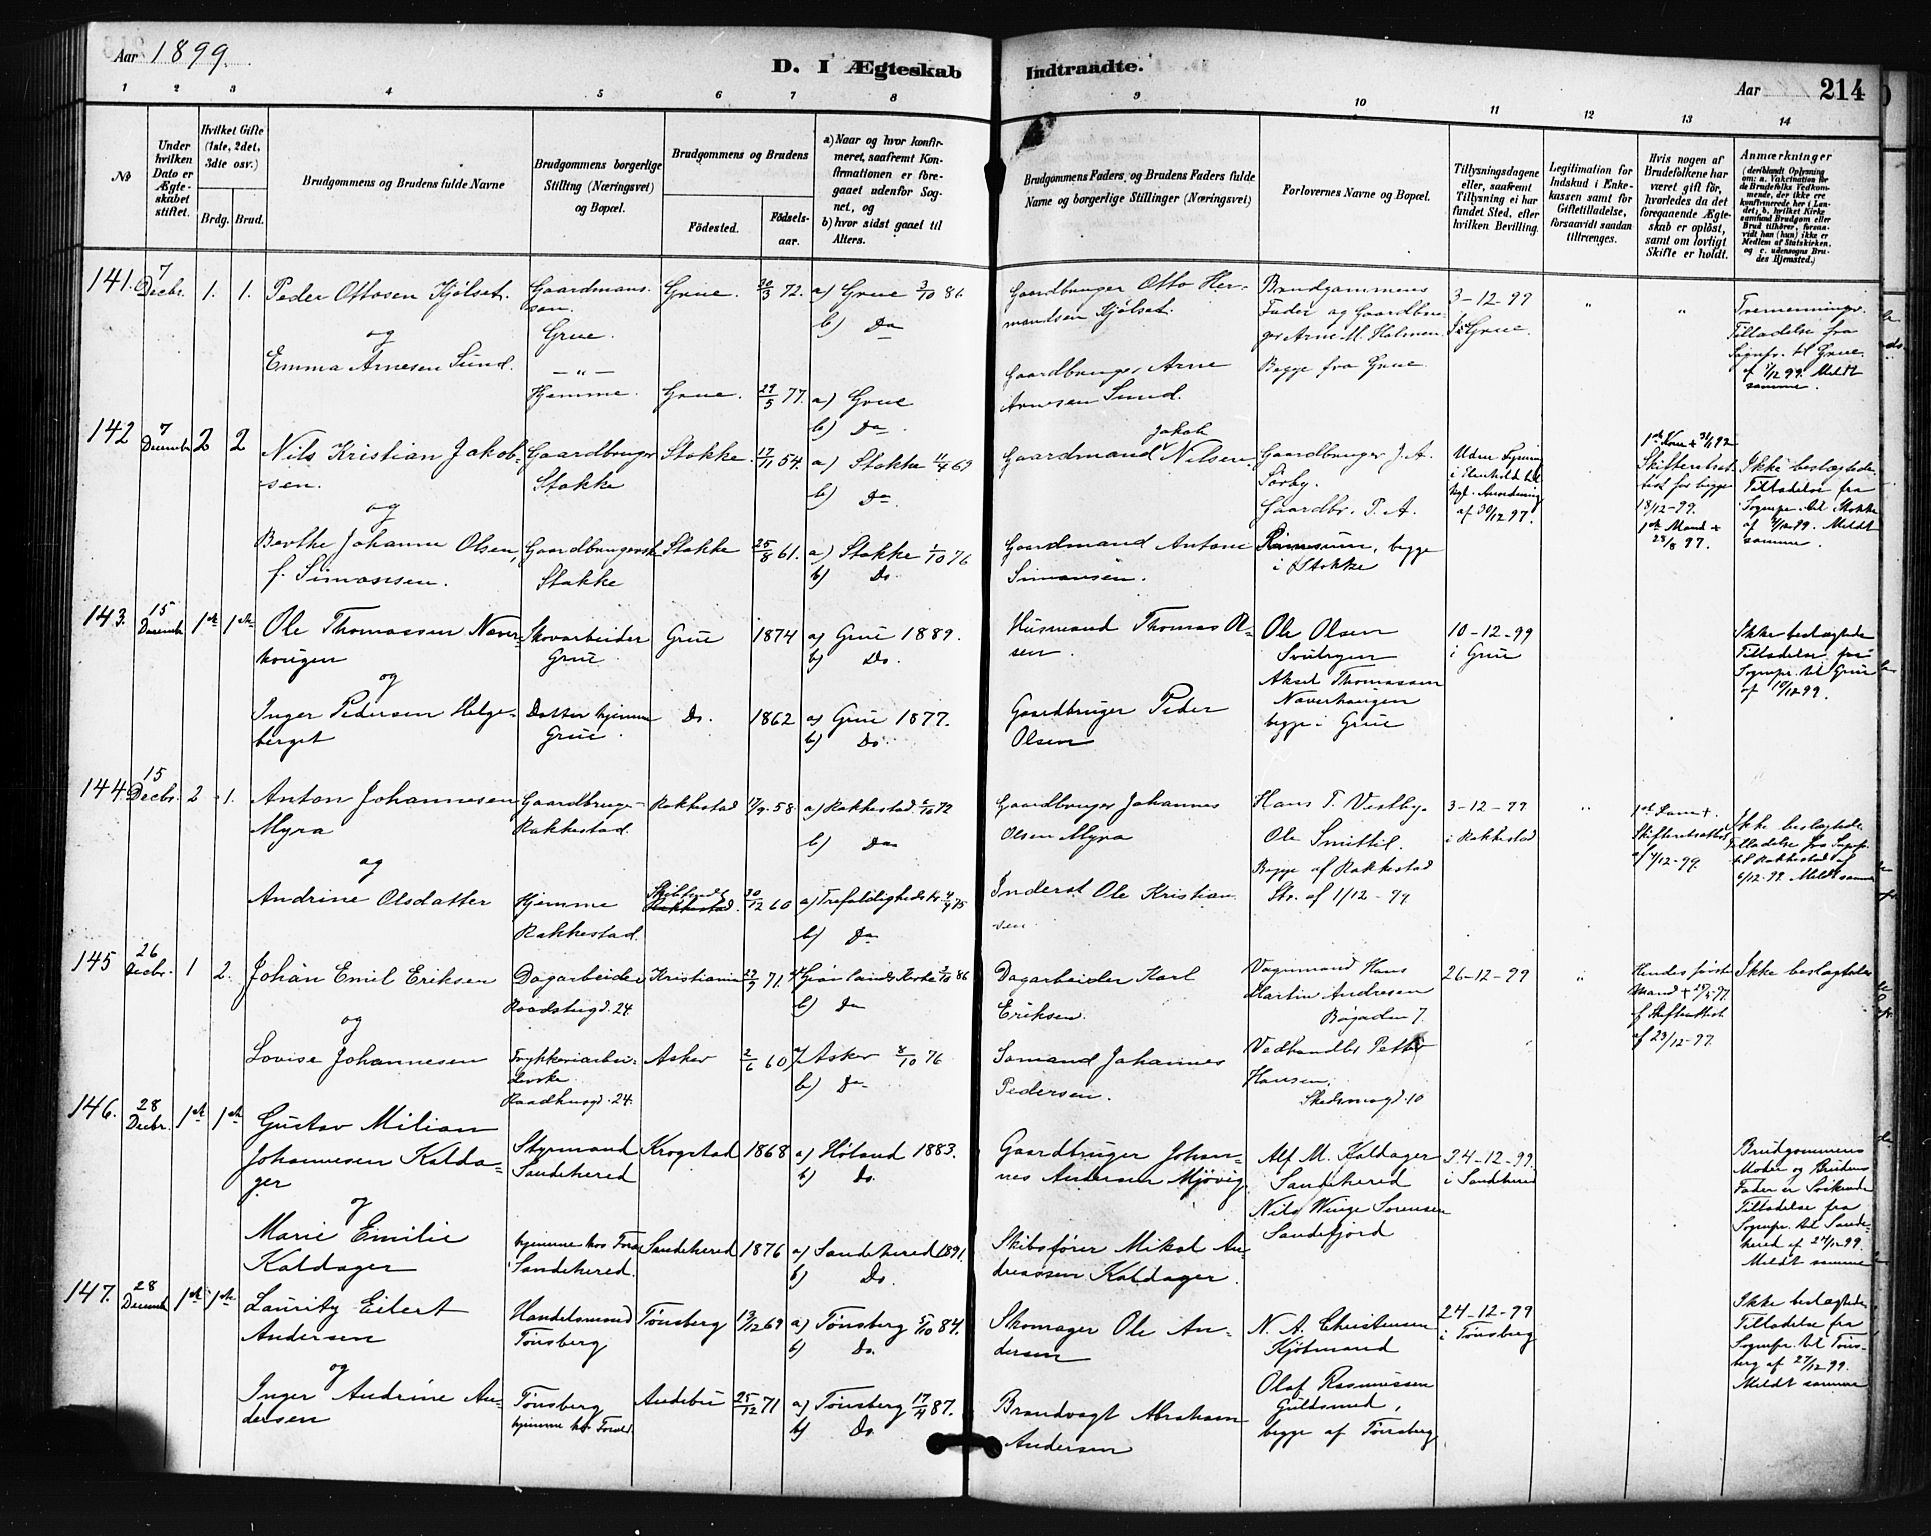 Aar 1899.
D. I Ægteskab
Indtraadte.
Aar
214
1 2 3 4 5 6 7 8
9 10 11 12 13 14
№
Under hvilken Dato er Ægteskabet stiftet.
Hvilket Gifte (1ste, 2det, 3die osv.)
Brdg. Brud.
Brudgommens og Brudens fulde Navne
Brudgommens borgerlige Stilling (Næringsvei) og Bopæl.
Brudgommens og Brudens
Födested.
Födsels-aar.
a) Naar og hvor konfirmeret, saafremt Konfirmationen er foregaaet udenfor Sognet, og
b) hvor sidst gaaet til Alters.
Brudgommens Faders, og Brudens Faders fulde Navne og borgerlige Stillinger (Næringsvei)
Forlovernes Navne og Bopæl.
Tillysningsdagene eller, saafremt Tillysning ei har fundet Sted, efter hvilken Bevilling.
Legitimation for Indskud i Enkekassen samt for Giftetilladelse, forsaavidt saadan tiltrænges.
Hvis nogen af Brudefolkene har været gift för, hvorledes da det foregaaende Ægteskab er oplöst, samt om lovligt Skifte er holdt.
Anmærkninger
141. 7 Decbr. 1. 1. Peder Ottosen Kjølset.
og
Emma Arnesen Sund.
Gaardmans-
søn.
Grue.
— " —
Hjemme.
Grue. 30/3 72. a) Grue 3/10 86.
b) Do
Grue. 29/5 77. a) Grue
b) Do.
Gaardbruger Otto Her-
mandsen Kjølset.
Gaardbruger Arne
Arnesen Sund.
Brudgommens
Fader og Gaardbru-
ger Arne M. Holmen
Begge fra Grue.
3-12-99
i Grue.
Tremenninger.
Tilladelse fra
Sognepr. til Grue
af 7/12 99. Meldt
samme.
142 7 Decembr 2 2 Nils Kristian Jakob-
sen.
og
Berthe Johanne Olsen,
f. Simonsen.
Gaardbruger
Stokke
Stokke
Stokke. 17/11 54. a) Stokke 11/4 69
b) Do.
Stokke 25/8 61. a) Stokke 1/10 76
b) Do.
Gaardmand Jakob Nilsen
Gaardmand Antoni
Simonsen.
Gaardbruger J. A.
Sörby.
Gaardbr. P. A.
begge
i Stokke
af 30/12 97.
Skifteretsat-
test for begge
18/12-99.
1ste Mand +
28/8 97.
Ikke beslægtede
Tilladelse fra
Sognepr. til Stokke
Meldt
samme.
143. 15 Decembr 1ste 1ste Ole Thomassen Naver-
hougen
og
Inger Pedersen Helge-
berget
Skovarbeider
Grue
Datter hjemme
Grue.
Grue 1874 a) Grue 1889.
b) Do.
Do. 1862 a) Grue 1877.
b) Do.
Husmand Thomas Ol-
sen.
Gaardbruger Peder
Olsen
Ole Olsen
Aksel Thomassen
Naverhaugen
begge i Grue
10-12-99
i Grue
Ikke beslægtede
Tilladelse fra
Sognepr. til Grue
af 10/12 99.
144 15 Decbr. 2 1. Anton Johannesen
Myra
og
Andrine Olsdatter
Gaardbruger
Rakkestad.
Hjemme
Rakkestad.
Rakkestad 58 a) Rakkestad 72
b) Do
Rakkestad. 30/12 60 a) Trefoldigheds K. 4/4 75
b) Do
Gaardbruger Johannes
Olsen Myra
Inderst Ole Kristian-
sen
Hans T. Vestby.
Ole Smittil.
Begge af Rakkestad
Str. af 1/12-99
3-12-99
i Rakkestad
Skifteretsattest
af 4/12-99.
Ikke beslægtede
Tilladelse fra Sognepr.
til Rakkestad af
6/12 99. Meldt samme
145 26 Decbr. 1 2. Johan Emil Eriksen
og
Lovise Johannesen
Dagarbeider
Raadhusgd. 24
Trykkeriarbei-
derske.
Raadhusgd. 24.
Kristiania 71. a) Grønlands Kirke 86
b) Do
Asker 2/6 60 a) Asker 8/10 76
b) Do
Dagarbeider Karl
Eriksen.
Sømand Johannes
Pedersen.
Vognmand Hans
Martin Andresen
Bøgaden 7.
Vedhandler Petter
Hansen.
Skedsmogd. 10
26-12-99
Hendes første
Mand +
af Skifteattest
af 23/12-99.
Ikke beslægtede
146. 28 Decbr. 1ste 1ste Gustav Milian
Johannesen Kalda-
ger
og
Marie Emilie
Kaldager
Styrmand
Sandeherred
hjemme hos Foræ
Sandeherred.
Krogstad 1868 a) Høland 1883.
b) Do.
Sandeherred 1876 a) Sandeherred 1891.
b) Do.
Gaardbruger Johan-
nes Andersen Mjøvig
Skibsfører Mikal An-
dreassen Kaldager.
Alf M. Kaldager
Sandeherred
Nils Winge Sørensen
Sandefjord
24-12-99.
i Sandeherred
Brudgommens
Moder og Brudens
Fader er Søskende
Tilladelse fra
Sognepr. til Sande-
herred af 24/12 99.
Meldt samme
147. 28 Decembr 1ste 1ste Lauritz Eilert
Andersen
og
Inger Andrine An-
dersen
Handelsmand
Tønsberg
Tønsberg
hjemme hos Foræld.
Tønsberg 13/12 69 a) Tønsberg 5/10 84.
b) Do.
Andebu 25/12 71 a) Tønsberg 17/4 87.
b) Do.
Skomager Ole An-
dersen
Brandvagt Abraham
Andersen
N. A. Christensen
Kjöbmand
Olaf Rasmussen
Guldsmed,
begge af Tønsberg
24-12-99
i Tønsberg
Ikke beslægtede,
Tilladelse fra
Sognepr. til Tøns-
berg af 27/12 99.
Meldt samme